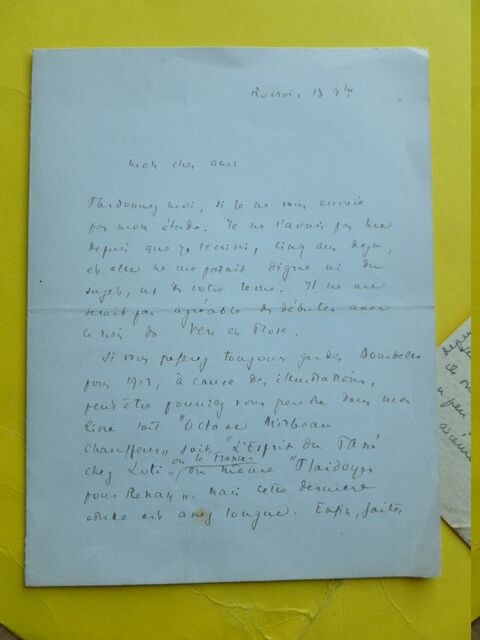 Rocroi, 13 9bre
mon cher ami
Pardonnez moi, si je ne vous envoie
pas mon étude. Je ne l'avais pas lue
depuis que je l'écrivis, cinq ans déjà,
et elle ne me parait digne ni du
sujet, ni de votre revue. Il ne me
serait pas agréable de débuter avec
ce nom de Vers et Prose.
Si vous préférez toujours garder Bourdelle
pour 1912, à cause des illustrations,
peut être pourriez vous prendre dans mon
livre soit "Octave Mirbeau
Chauffeur", soit "L'Esprit du Passé
chez Loti", ou France" ou même "Plaidoyer
pour Renan". Mais cette dernière
étude est assez longue. Enfin, faites